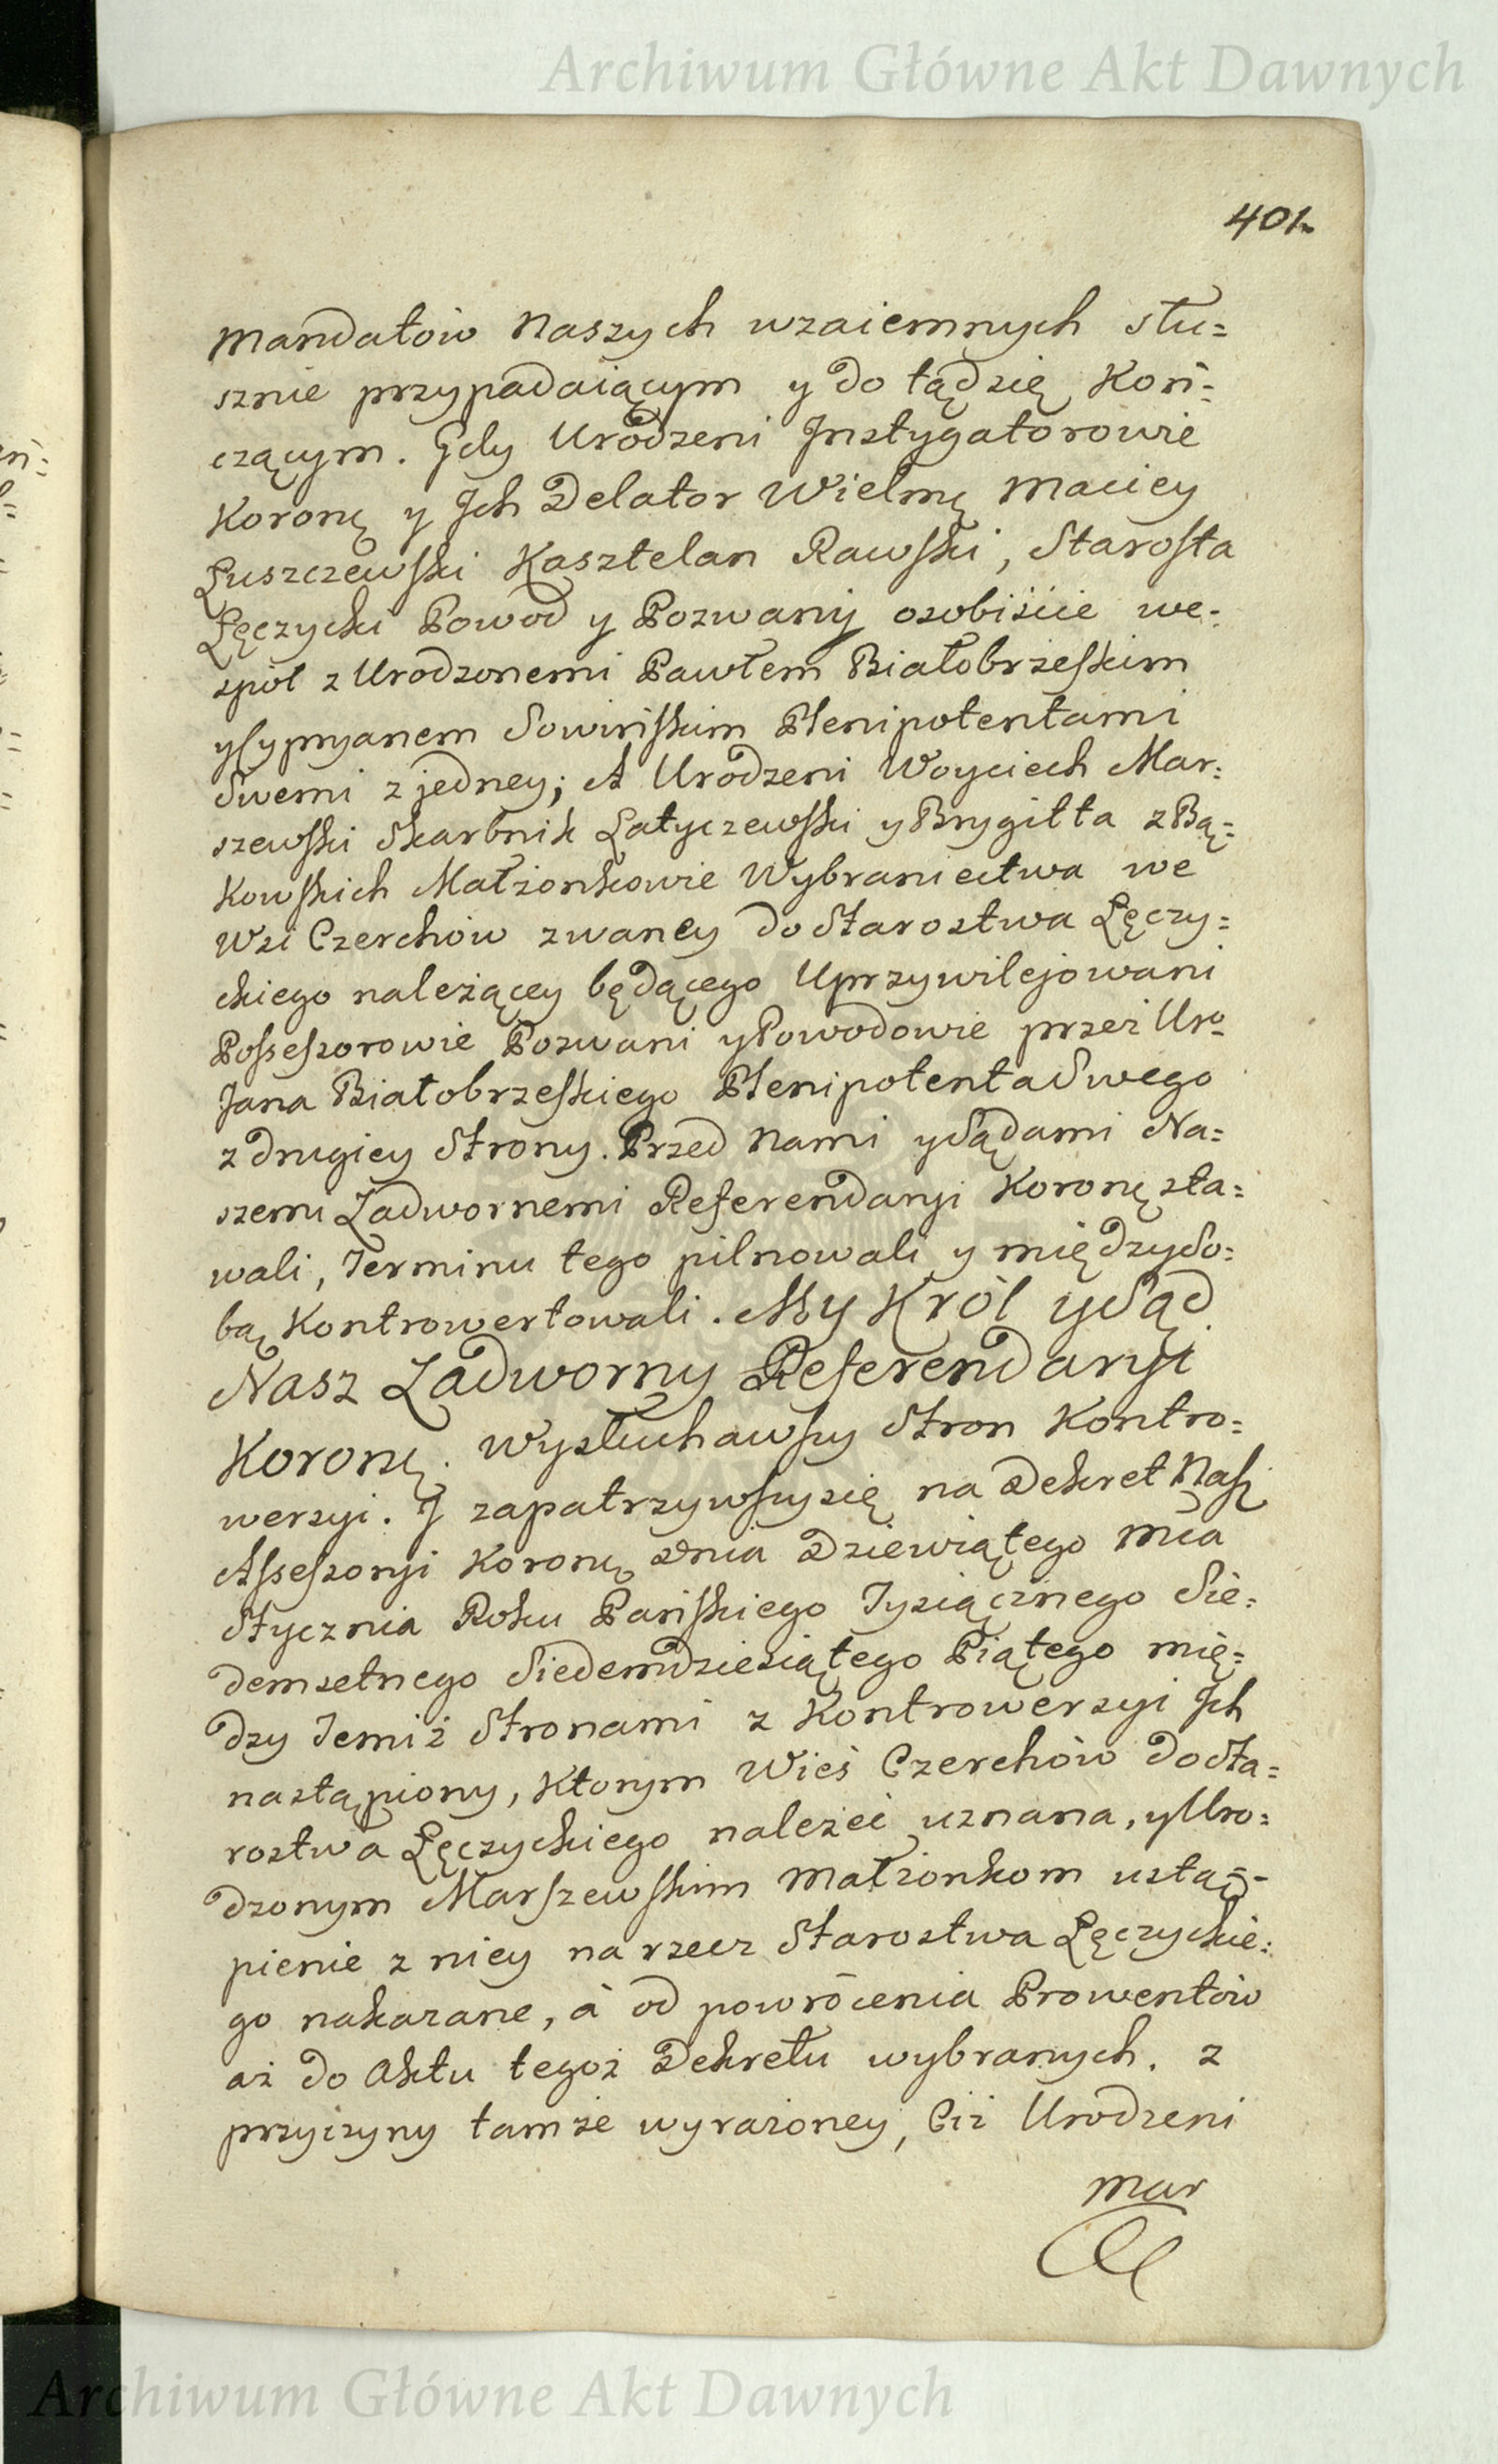 Archiwum Główne Akt Dawnych
401.
Mandatów Naszych wzaiemnych słu=
sznie przypadaiącym y do tąd się Koń=
czącym. Gdy Urodzeni Instygatorowie
Koronę y Ich Delator Wielmę Maciey
Łuszczewski Kasztelan Rawski, Starosta
Łęczycki Powod y Pozwany osobiście we=
spół z Urodzonemi Pawłem Białobrzeskim
y Cypryanem Sowińskim Plenipotentami
Swemi z jedney; A Urodzeni Woyciech Mar=
szewski Skarbnik Latyczewski y Brygitta z Bą=
Kowskich Małżonkowie Wybraniectwa we
Wsi Czerchow zwaney do Starostwa Łęczy=
ckiego należącey będącego Uprzywilejowani
Possessorowie Pozwani y Powodowie przez Uro
Jana Białobrzeskiego Plenipotenta Swego
z drugiey Strony. Przed Nami y Sądami Na=
szemi Zadwornemi Referendaryi Koronę sta=
wali, Terminu tego pilnowali y między So=
bą Kontrowertowali. My Król y Sąd
Nasz Zadworny Referendaryi
Koronę. Wysłuchawszy Stron Kontro=
wersyi. I zapatrzywszy się na Dekret Nasz
Assessoryi Koronę Dnia Dziewiątego Mca
Stycznia Roku Pańskiego Tysiącznego Sie=
demsetnego Siedemdziesiątego Piątego mię=
dzy Temiż Stronami z Kontrowersyi Ich
nastąpiony, Którym Wieś Czerchów do Sta=
rostwa Łęczyckiego należeć uznana, y Uro=
dzonym Marszewskim Małżonkom ustą=
pienie z niey na rzecz Starostwa Łęczyckie=
go nakazane, á od powrócenia Prowentów
aż do Aktu tegoż Dekretu wybranych. z
przyczyny tamże wyrażoney, Ciż Urodzeni
Mar
Archiwum Główne Akt Dawnych